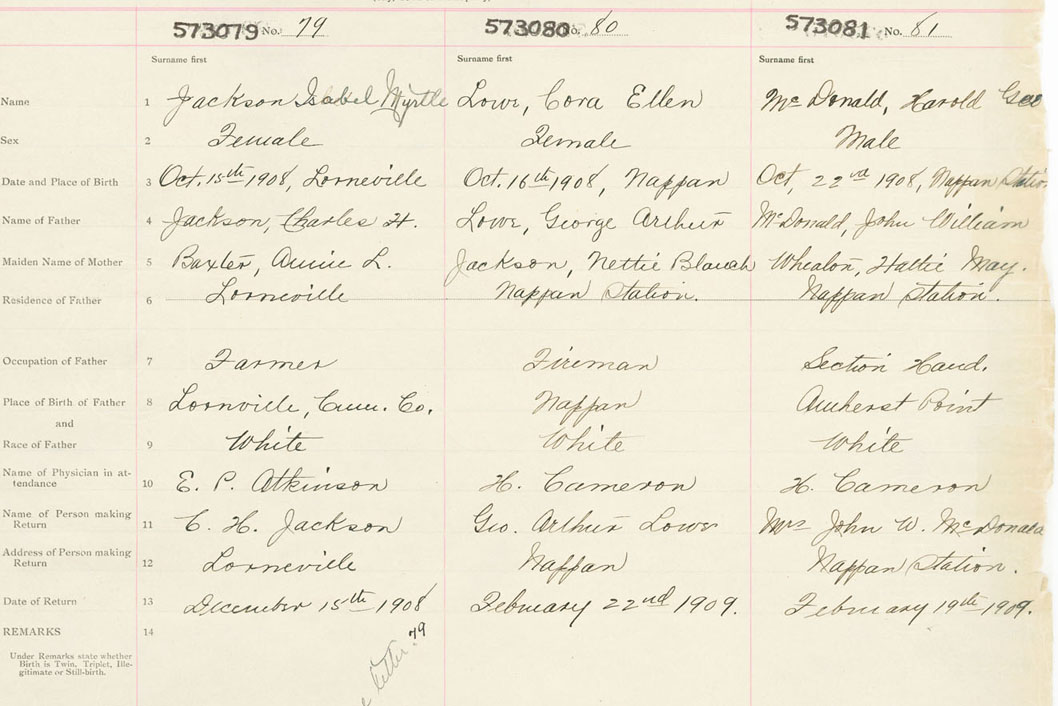 573079 No. 79 573080 No. 80 573081 No. 81
Surname first Surname first Surname first
Name 1 Jackson Isabel Myrtle Lowe, Cora Ellen McDonald, Harold Geo
Sex 2 Female Female Male
Date and Place of Birth 3 Oct. 15th 1908, Lorneville Oct. 16th 1908, Nappan Oct, 22nd 1908, Nappan Station
Name of Father 4 Jackson, Charles H. Lowe, George Arthur McDonald, John William
Maiden Name of Mother 5 Baxter, Annie L. Jackson, Nettie Blanch Whealon, Hattie May.
Residence of Father 6 Lorneville Nappan Station. Nappan Station.
Occupation of Father 7 Farmer Fireman Section Hand.
Place of Birth of Father 8 Lornville, Cum. Co. Nappan Amherst Point
and
Race of Father 9 White White White
Name of Physician in at-
tendance 10 E. P. Atkinson H. Cameron H. Cameron
Name of Person making
Return 11 C. H. Jackson Geo. Arthur Lowe Mrs John W. McDonald
Address of Person making
Return 12 Lorneville Nappan Nappan Station.
Date of Return 13 December 15th 1908 February 22nd 1909. February 19th 1909.
REMARKS 14
Under Remarks state whether
Birth is Twin, Triplet, Ille-
gitimate or Still-birth.
letter 79